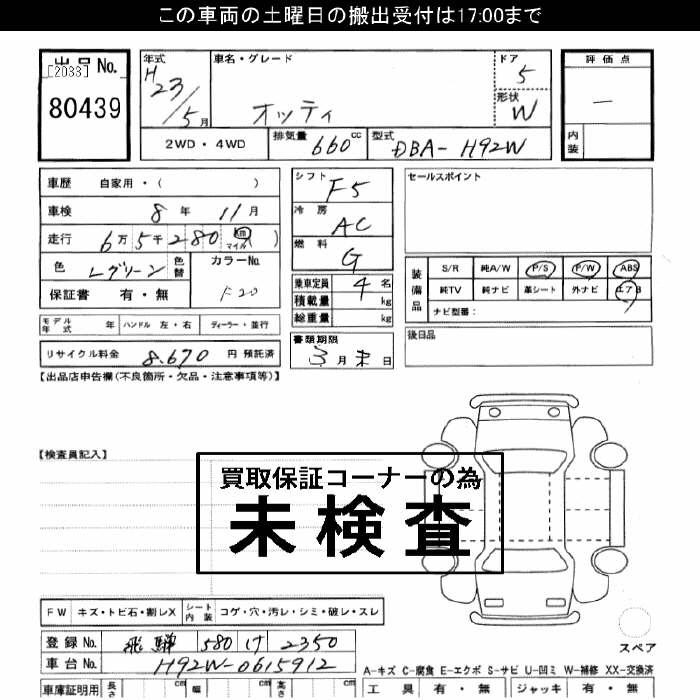 この車両の土曜日の搬出受付は17:00まで
出品 No.
[2033]
80439
年式
H
23/5月
車名・グレード
オッティ
ドア
5
形状
W
評価点
―
内装
2WD・4WD
排気量 660 cc
型式 DBA-H92W
車歴 自家用・( )
車検 8年 11月
走行 6万5千280 km マイル ( )
色 Lグリーン 色替
カラーNo. F20
保証書 有・無
シフト F5
冷房 AC
燃料 G
乗車定員 4名
積載量 kg
総重量 kg
セールスポイント
装備品
S/R 純A/W P/S P/W ABS
純TV 純ナビ 革シート 外ナビ エアB
ナビ型番:
モデル年式 年 ハンドル 左・右 ディーラー・並行
リサイクル料金 8,670 円 預託済
書類期限
3月末日
後日品
【出品店申告欄(不良箇所・欠品・注意事項等)】
【検査員記入】
買取保証コーナーの為
未検査
FW キズ・トビ石・割レX シート内装 コゲ・穴・汚レ・シミ・破レ・スレ
登録 No. 飛騨 580 け 2350
車台 No. H92W-0615912
スペア
A-キズ C-腐食 E-エクボ S-サビ U-凹ミ W-補修 XX-交換済
車庫証明用 長さ cm 幅 cm 高さ cm
工具 有・無 ジャッキ 有・無